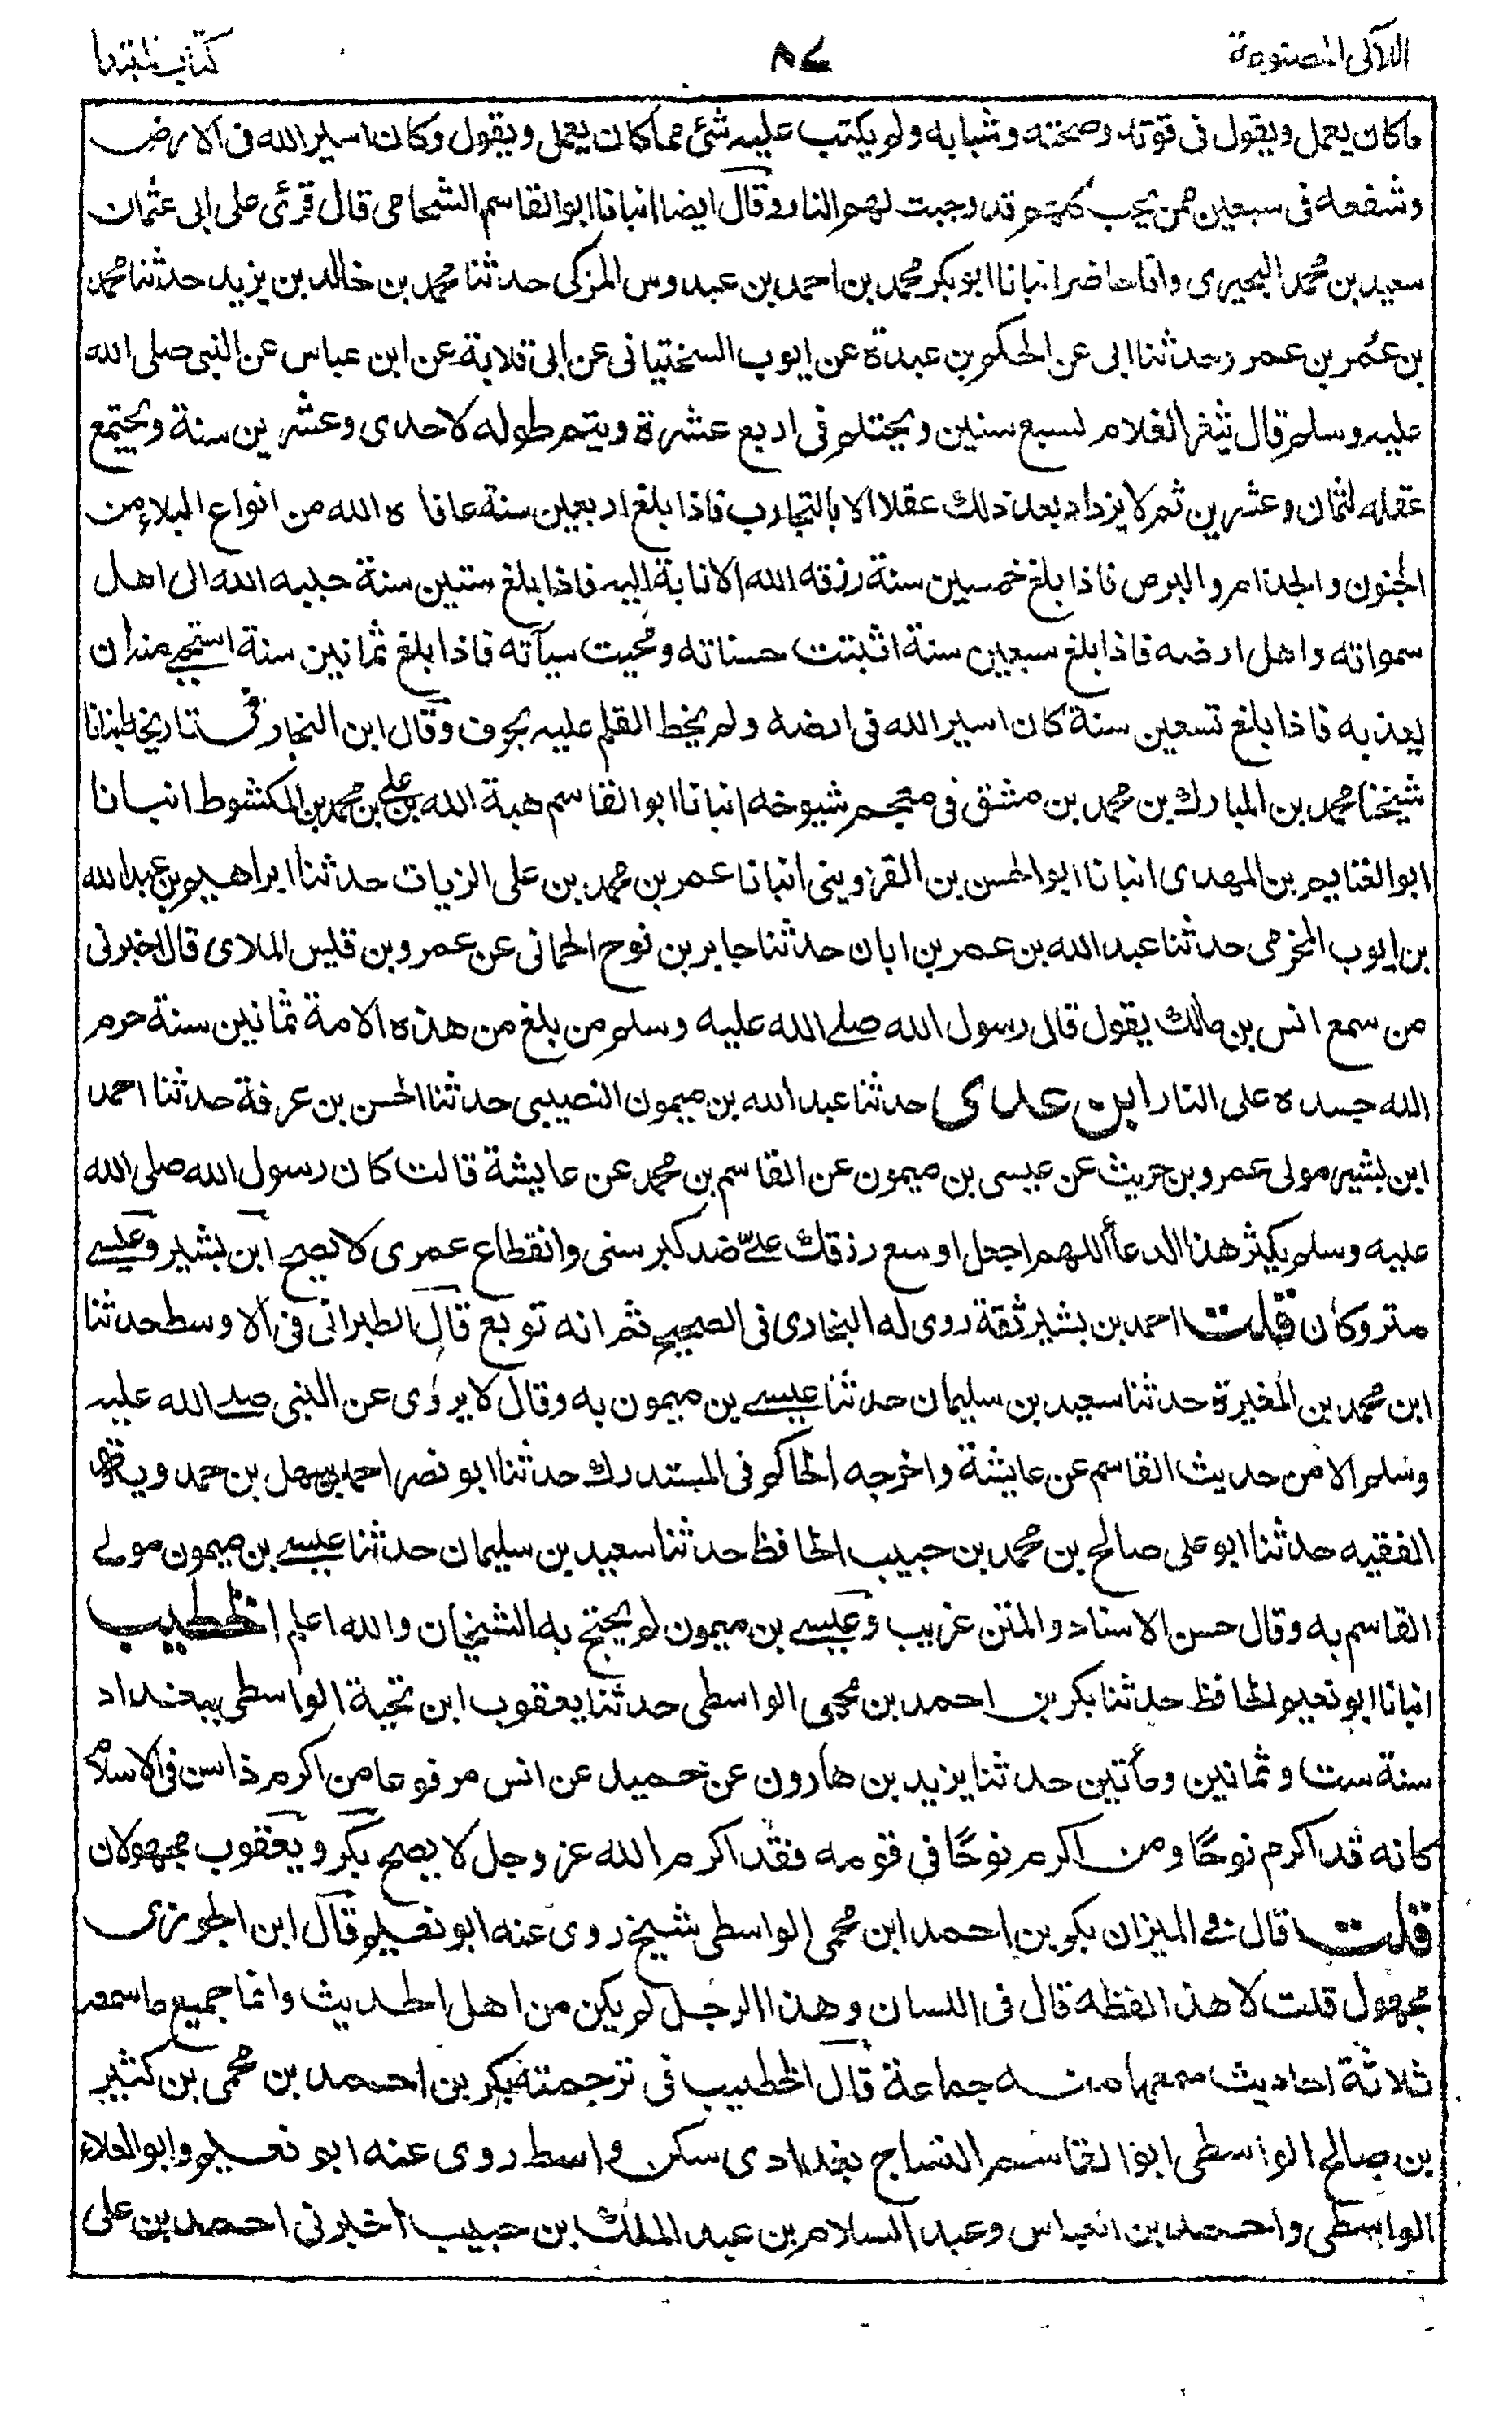 اللآلى المصنوعة ٨٤ كتاب المبتدا
ما كان يعمل ويقول فى قوته وصحته وشبابه ولم يكتب عليه شئ مما كان يعمل ويقول وكان اسير الله فى الارض
وشفعه فى سبعين ممن يحب كلهم قد وجبت لهم النار وقال ايضا انبانا ابو القاسم الشحامى قال قرئ على ابى عثمان
سعيد بن محمد البحيرى وانا حاضر انبانا ابو بكر محمد بن احمد بن عبدوس المزكى حدثنا محمد بن خالد بن يزيد حدثنا محمد
بن عمر بن عمر وحدثنا ابى عن الحكم بن عبدة عن ايوب السختيانى عن ابى قلابة عن ابن عباس عن النبى صلى الله
عليه وسلم قال يثغر الغلام لسبع سنين ويحتلم فى اربع عشرة ويتم طوله لاحدى وعشرين سنة ويجتمع
عقله لثمان وعشرين ثم لا يزداد بعد ذلك عقلا الا بالتجارب فاذا بلغ اربعين سنة عافاه الله من انواع البلاء من
الجنون والجذام والبرص فاذا بلغ خمسين سنة رزقه الله الانابة اليه فاذا بلغ ستين سنة حببه الله الى اهل
سمواته واهل ارضه فاذا بلغ سبعين سنة اثبتت حسناته ومحيت سيآته فاذا بلغ ثمانين سنة استحيى منه ان
يعذبه فاذا بلغ تسعين سنة كان اسير الله فى ارضه ولم يخط القلم عليه بحرف وقال ابن النجار فى تاريخه انبانا
شيخنا محمد بن المبارك بن محمد بن مشق فى معجم شيوخه انبانا ابو القاسم هبة الله بن على بن محمد بن المكشوط انبانا
ابو الغنايم بن المهدى انبانا ابو الحسن بن القزوينى انبانا عمر بن محمد بن على الزيات حدثنا ابراهيم بن عبد الله
بن ايوب المخرمى حدثنا عبد الله بن عمر بن ابان حدثنا جابر بن نوح الحمانى عن عمرو بن قيس الملاى قال اخبرنى
من سمع انس بن مالك يقول قال رسول الله صلى الله عليه وسلم من بلغ من هذه الامة ثمانين سنة حرم
الله جسده على النار ابن عدى حدثنا عبد الله بن ميمون النصيبى حدثنا الحسن بن عرفة حدثنا احمد
ابن بشير مولى عمرو بن حريث عن عيسى بن ميمون عن القاسم بن محمد عن عايشة قالت كان رسول الله صلى الله
عليه وسلم يكثر هذا الدعا اللهم اجعل اوسع رزقك علىّ عند كبر سنى وانقطاع عمرى لا يصح ابن بشير وعيسى
متروكان قلت احمد بن بشير ثقة روى له البخارى فى الصحيح ثم انه توبع قال الطبرانى فى الاوسط حدثنا
ابن محمد بن المغيرة حدثنا سعيد بن سليمان حدثنا عيسى بن ميمون به وقال لا يروى عن النبى صلى الله عليه
وسلم الا من حديث القاسم عن عايشة واخرجه الحاكم فى المستدرك حدثنا ابو نصر احمد بن سهل بن حمدويه
الفقيه حدثنا ابو على صالح بن محمد بن حبيب الحافظ حدثنا سعيد بن سليمان حدثنا عيسى بن ميمون مولى
القاسم به وقال حسن الاسناد والمتن غريب وعيسى بن ميمون لم يحتج به الشيخان والله اعلم الخطيب
انبانا ابو نعيم الحافظ حدثنا بكر بن احمد بن محمى الواسطى حدثنا يعقوب ابن تحية الواسطى ببغداد
سنة ست وثمانين ومأتين حدثنا يزيد بن هارون عن حميد عن انس مرفوعا من اكرم ذا سن فى الاسلام
كانه قد اكرم نوحًا ومن اكرم نوحًا فى قومه فقد اكرم الله عز وجل لا يصح بكر ويعقوب مجهولان
قلت قال فى الميزان بكر بن احمد ابن محمى الواسطى شيخ روى عنه ابو نعيم قال ابن الجوزى
مجهول قلت لا هذا لفظه قال فى اللسان وهذا الرجل لم يكن من اهل الحديث وانما جميع ما سمعه
ثلاثة احاديث سمعها منه جماعة قال الخطيب فى ترجمته بكر بن احمد بن محمى بن كثير
بن صالح الواسطى ابو القاسم النساج بغدادى سكن واسط روى عنه ابو نعيم وابو العلاء
الواسطى واحمد بن العباس وعبد السلام بن عبد الملك ابن حبيب اخبرنى احمد بن على